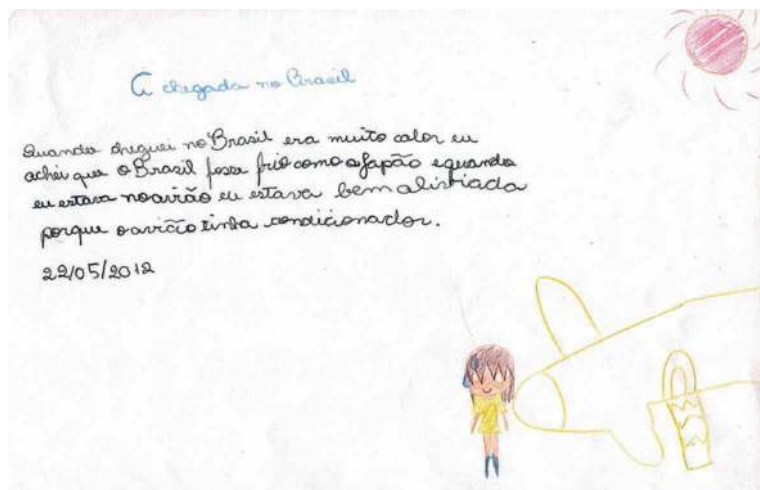 A chegada no Brasil
Quando cheguei no Brasil era muito calor eu
achei que o Brasil fosse frio como o Japão e quando
eu estava no avião eu estava bem alibiada
porque o avião tinha condicionador.
22/05/2012